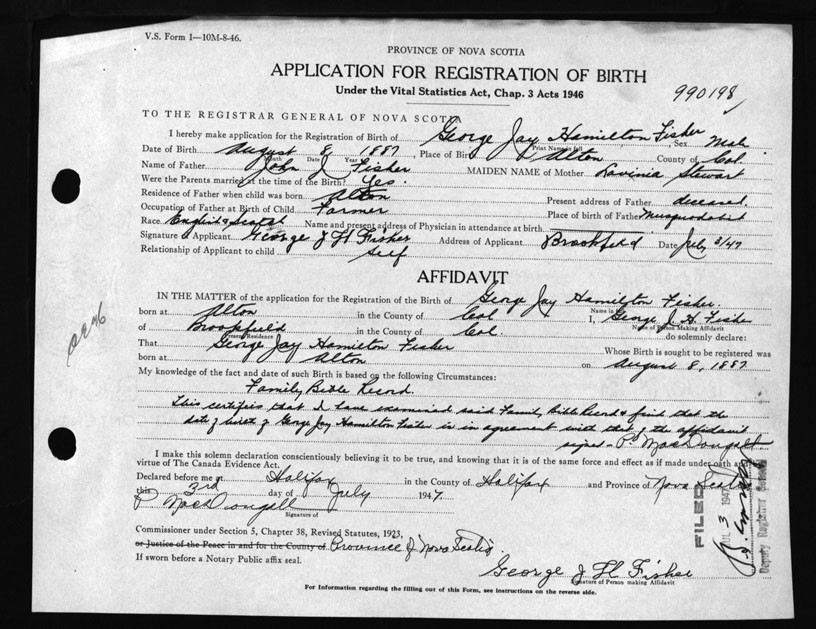 V.S. Form 1—10M-8-46.
PROVINCE OF NOVA SCOTIA
APPLICATION FOR REGISTRATION OF BIRTH
Under the Vital Statistics Act, Chap. 3 Acts 1946
990198
TO THE REGISTRAR GENERAL OF NOVA SCOTIA
I hereby make application for the Registration of Birth of George Jay Hamilton Fisher Sex Male
Print Name in full
Date of Birth August 8, 1887, Place of Birth Alton County of Col.
Month Date Year
Name of Father John J Fisher MAIDEN NAME of Mother Lavinia Stewart
Were the Parents married at the time of the Birth? Yes.
Residence of Father when child was born Alton Present address of Father deceased.
Occupation of Father at Birth of Child Farmer Place of birth of Father Musquodobit
Race English & Scotch Name and present address of Physician in attendance at birth
Signature of Applicant George J H Fisher Address of Applicant Brookfield Date July 3/47
Relationship of Applicant to child Self
AFFIDAVIT
IN THE MATTER of the application for the Registration of the Birth of George Jay Hamilton Fisher.
Name in
born at Alton in the County of Col I, George J. H. Fisher
Name of Person Making Affidavit
of Brookfield in the County of Col. do solemnly declare:
Present Residence
That George Jay Hamilton Fisher Whose Birth is sought to be registered was
born at Alton on August 8, 1887
My knowledge of the fact and date of such Birth is based on the following Circumstances:
Family Bible Record.
This certifies that I have examined said Family Bible Record & find that the
date of birth of George Jay Hamilton Fisher is in agreement with that of the affidavit
signed - P. MacDougall
I make this solemn declaration conscientiously believing it to be true, and knowing that it is of the same force and effect as if made under oath and
virtue of The Canada Evidence Act.
Declared before me at Halifax in the County of Halifax and Province of Nova Scotia
this 3rd day of July 1947
P MacDougall
Signature of
Commissioner under Section 5, Chapter 38, Revised Statutes, 1923,
or Justice of the Peace in and for the County of Province of Nova Scotia
If sworn before a Notary Public affix seal.
George J H Fisher
Signature of Person making Affidavit
For Information regarding the filling out of this Form, see instructions on the reverse side.
FILED
JUL 3 1947
Deputy Registrar General